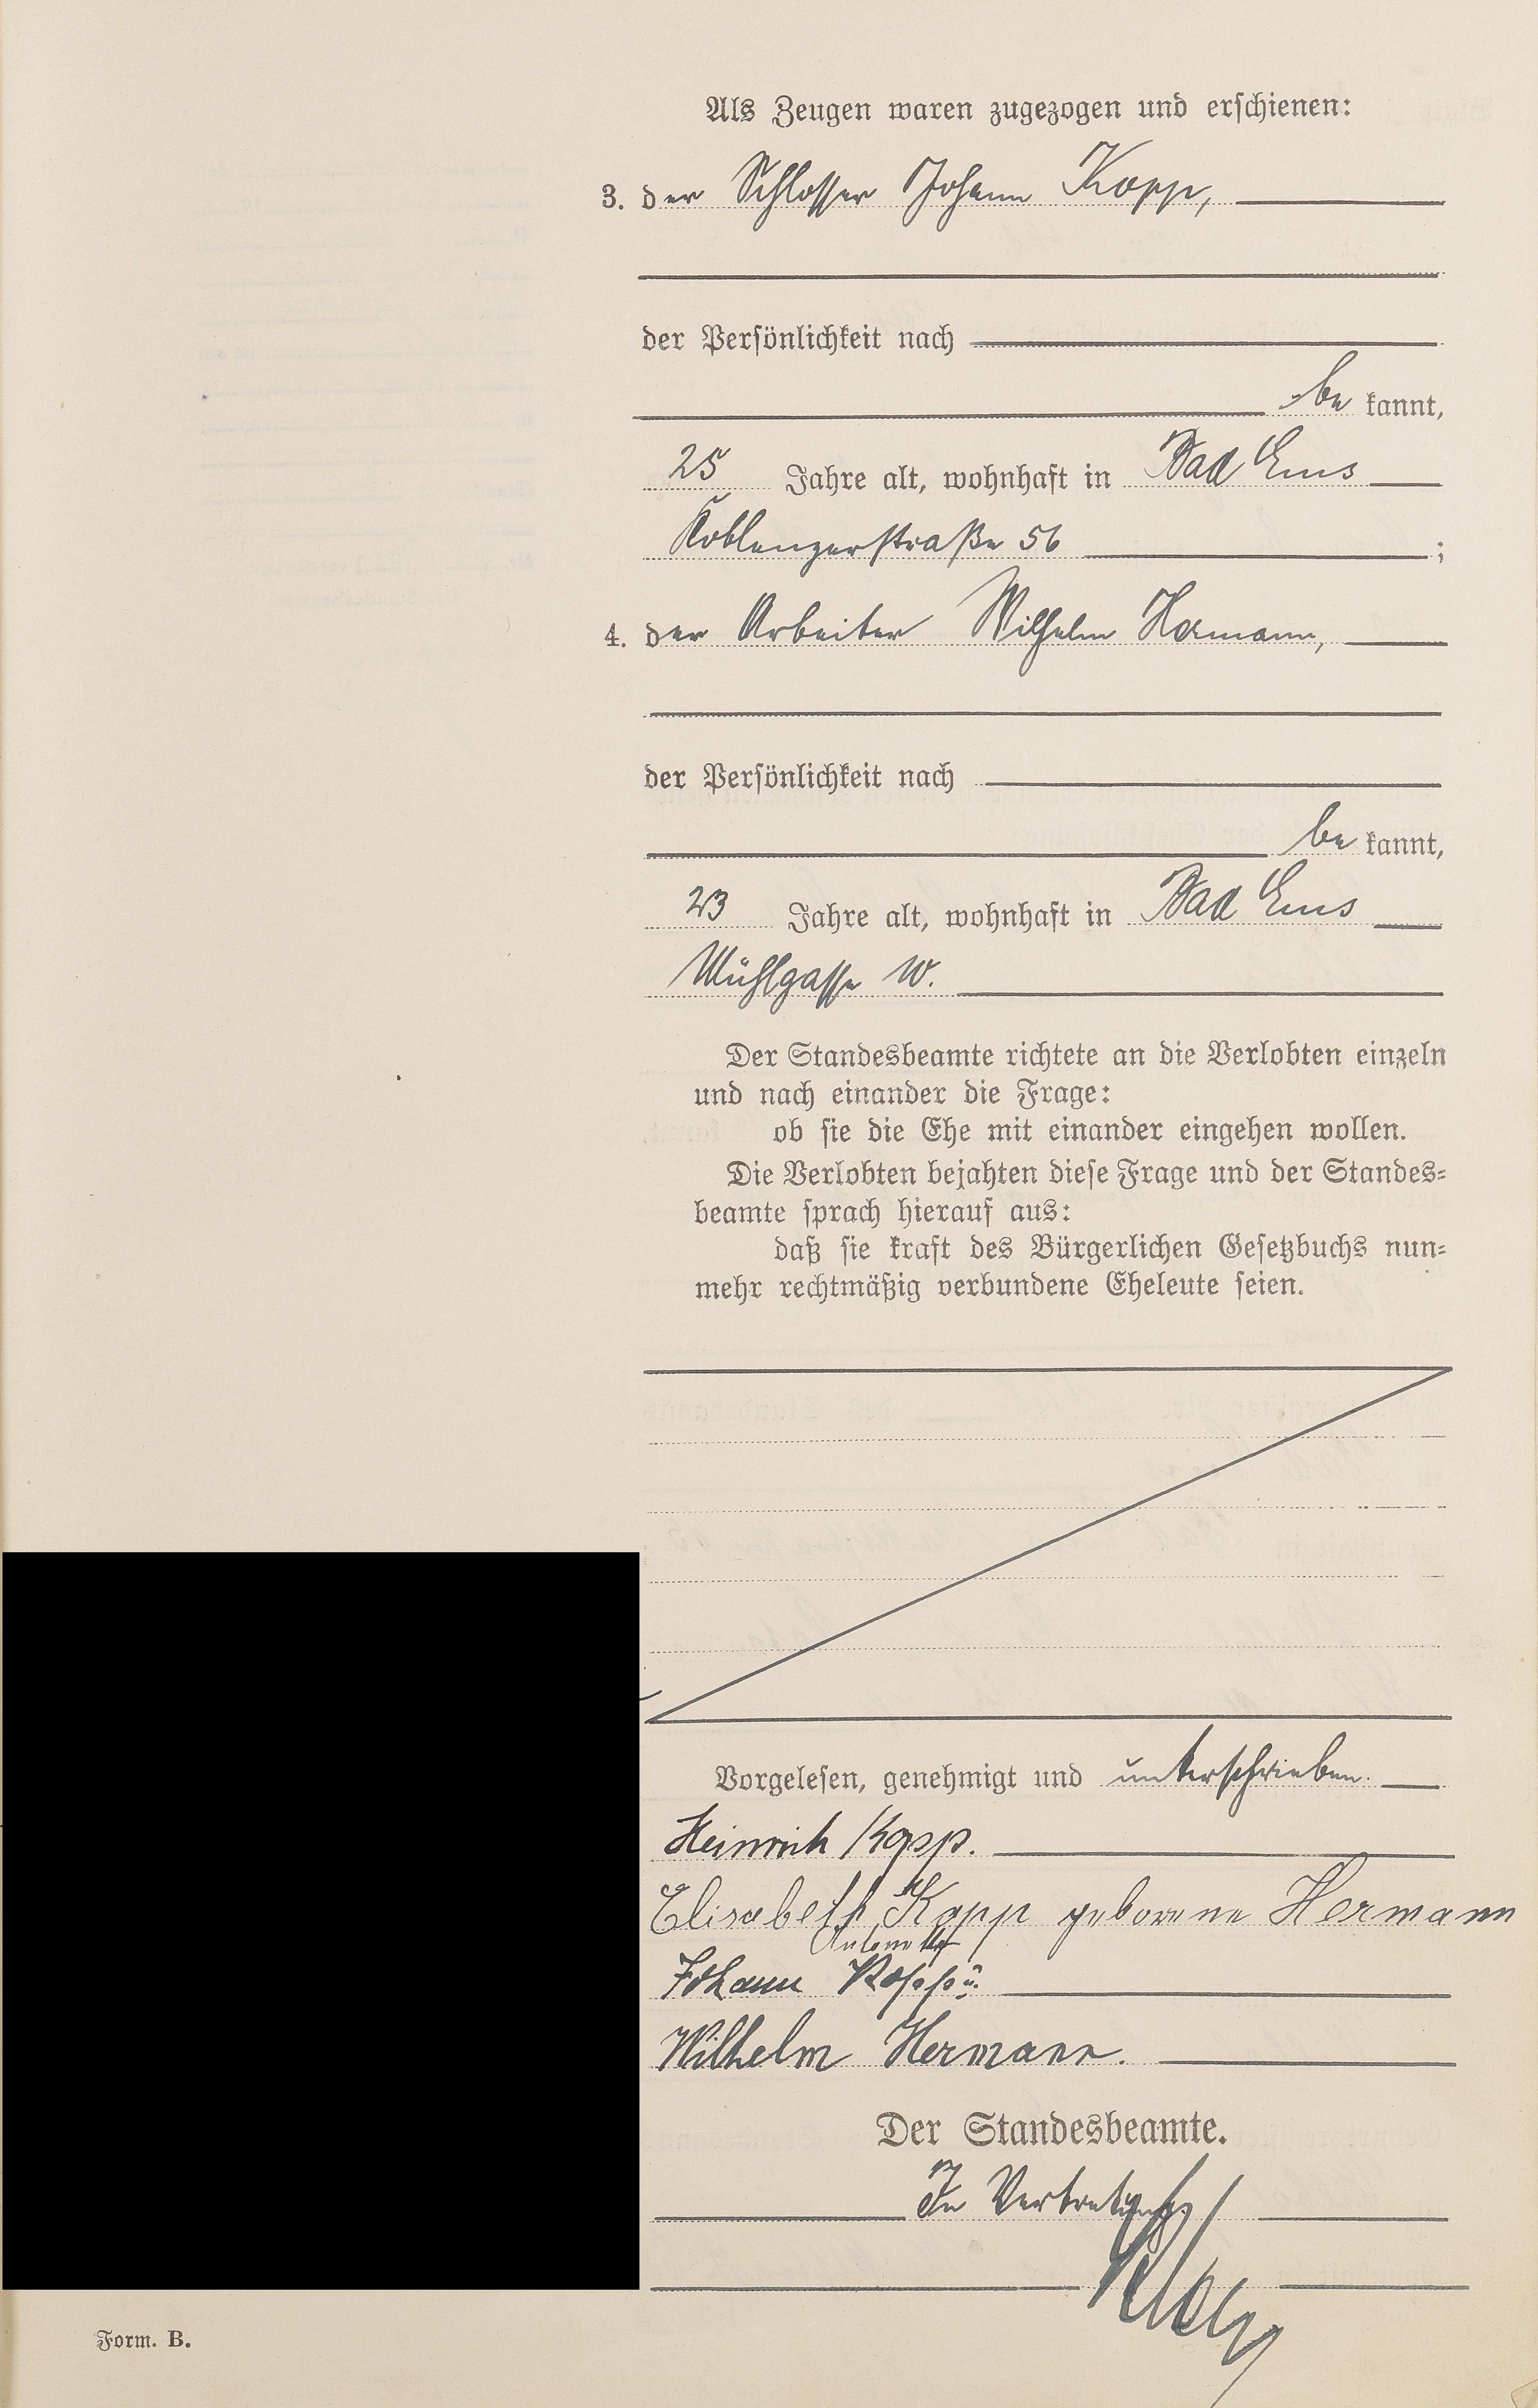 Als Zeugen waren zugezogen und erschienen:
3. der Schlosser Johann Kopp,
der Persönlichkeit nach
be kannt,
25 Jahre alt, wohnhaft in Bad Ems
Koblenzerstraße 56 ;
4. der Arbeiter Wilhelm Hermann,
der Persönlichkeit nach
be kannt,
23 Jahre alt, wohnhaft in Bad Ems
Mühlgasse 10.
Der Standesbeamte richtete an die Verlobten einzeln
und nach einander die Frage:
ob sie die Ehe mit einander eingehen wollen.
Die Verlobten bejahten diese Frage und der Standes=
beamte sprach hierauf aus:
daß sie kraft des Bürgerlichen Gesetzbuchs nun=
mehr rechtmäßig verbundene Eheleute seien.
Vorgelesen, genehmigt und unterschrieben.
Heinrich Kopp.
Elisabeth Kopp geborene Hermann
Johann Kopp
Wilhelm Hermann.
Der Standesbeamte.
In Vertretung
Form. B.